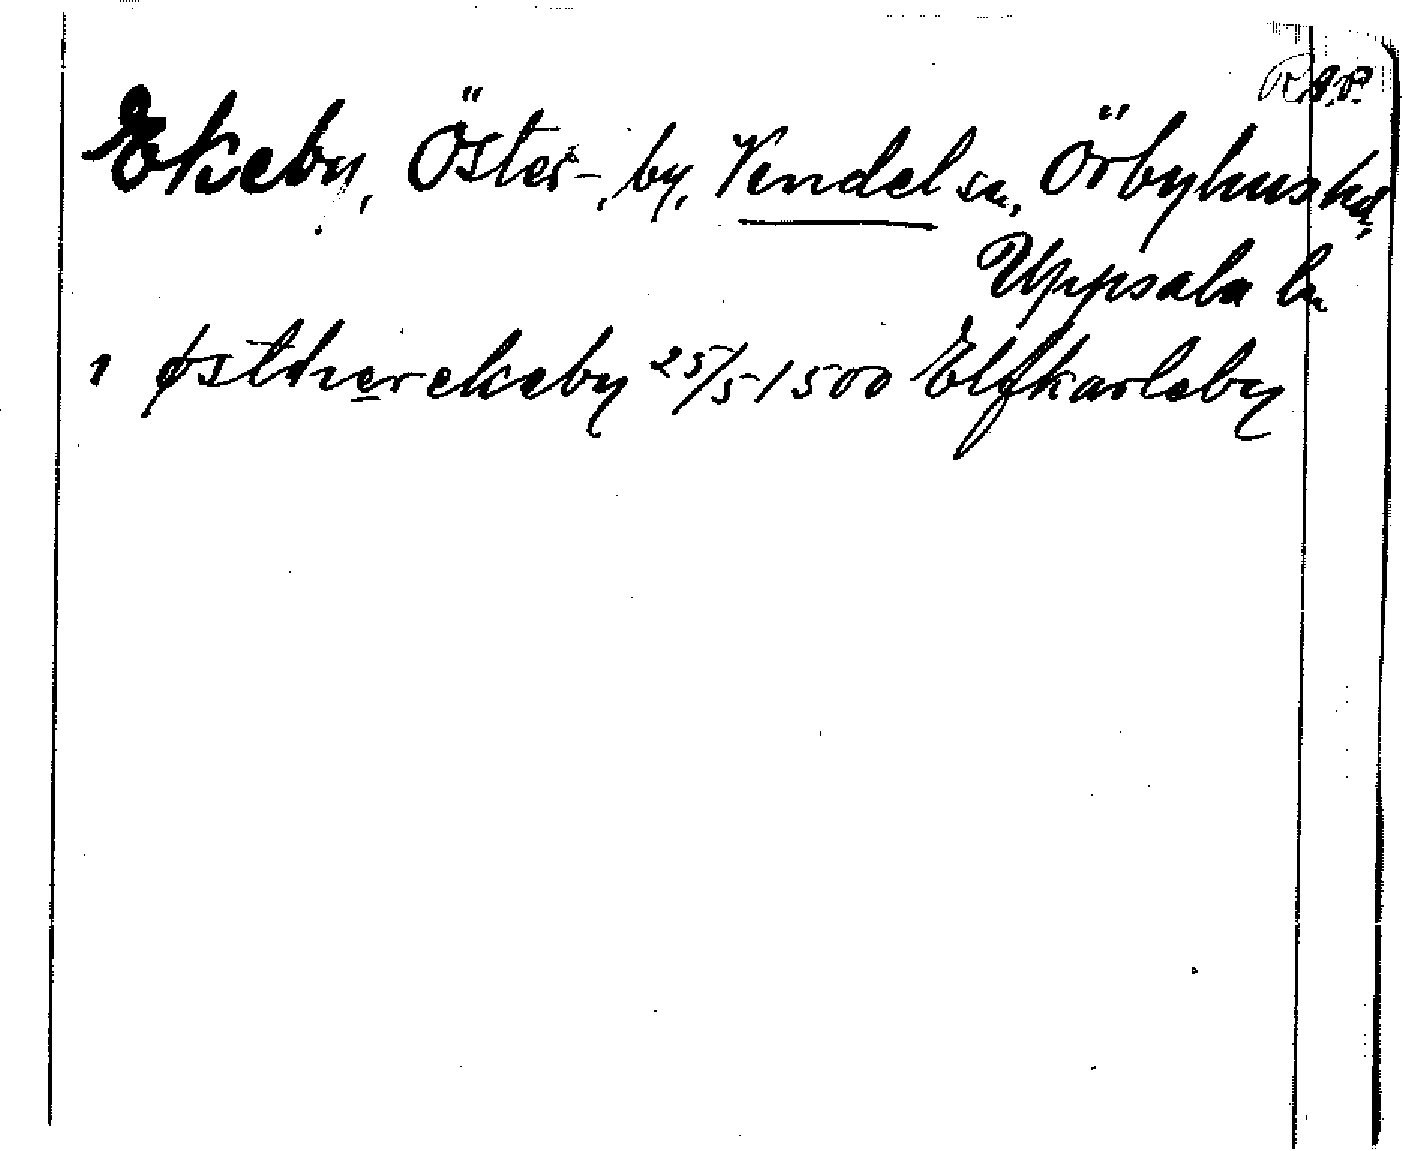 R.A.P.
Ekeby, Öster-, by, Vendel sn, Örbyhus hd,
Uppsala ln
1 østherekeby 25/5 1500 Elfkarleby